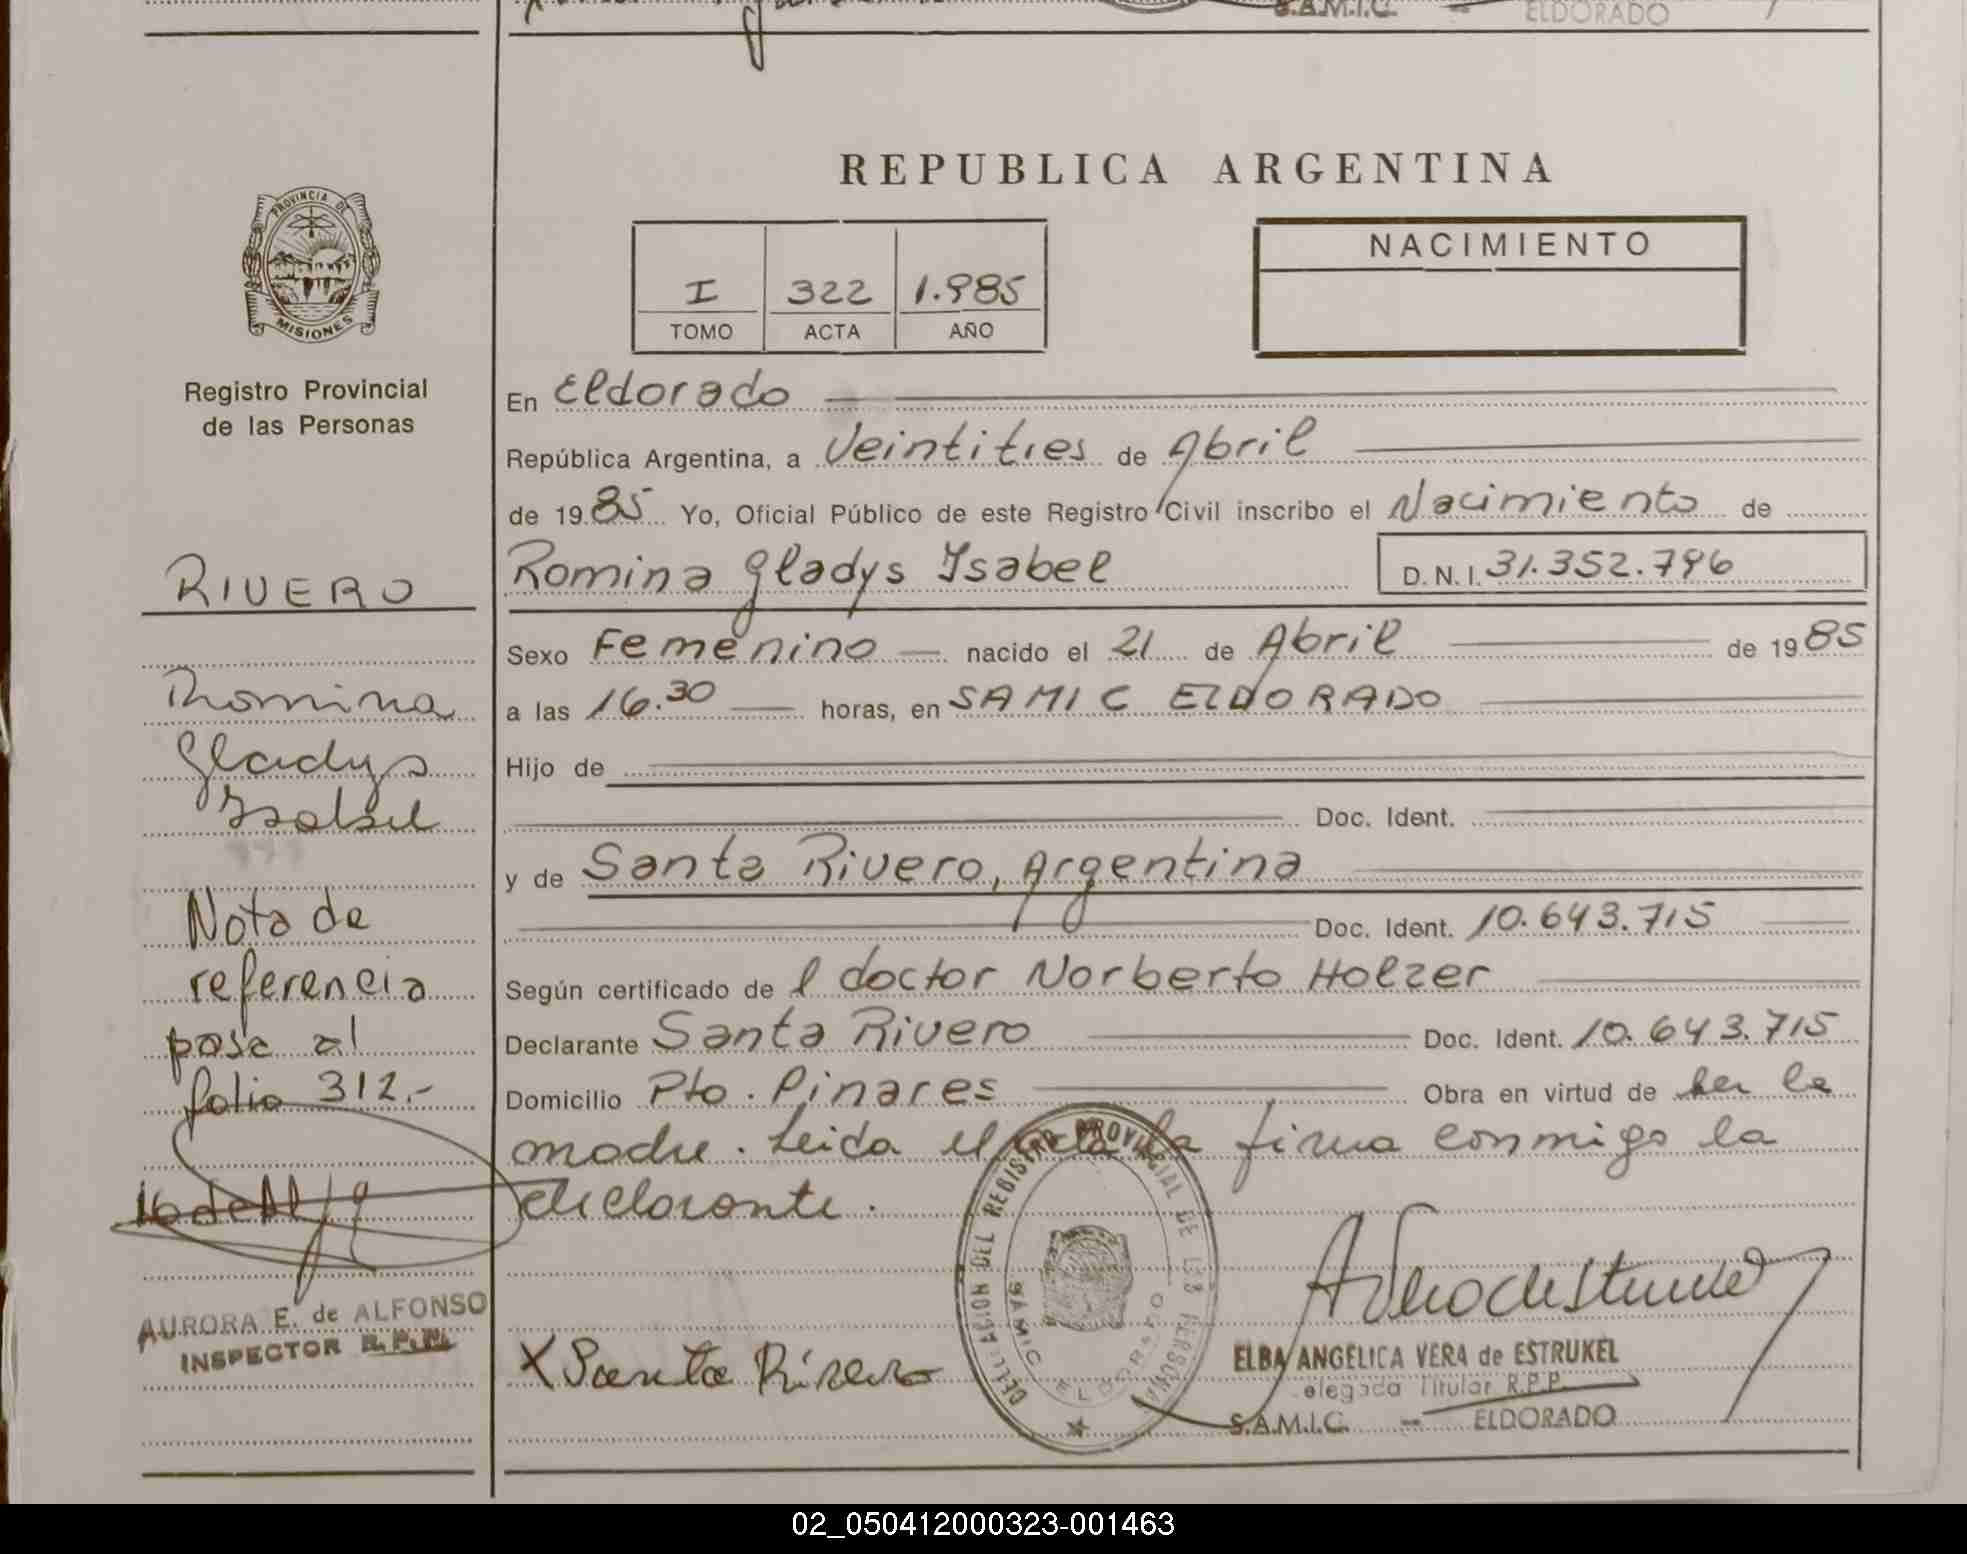 S.A.M.I.C. — ELDORADO
REPUBLICA ARGENTINA
PROVINCIA DE
MISIONES
Registro Provincial
de las Personas
I 322 1.985
TOMO ACTA AÑO
NACIMIENTO
En Eldorado
República Argentina, a Veintitres de Abril
de 1985 Yo, Oficial Público de este Registro Civil inscribo el Nacimiento de
Romina Gladys Isabel D.N.I. 31.352.796
Sexo Femenino — nacido el 21 de Abril de 1985
a las 16.30 — horas, en SAMIC ELDORADO
Hijo de
Doc. Ident.
y de Santa Rivero, Argentina
Doc. Ident. 10.643.715
Según certificado de l doctor Norberto Holzer
Declarante Santa Rivero Doc. Ident. 10.643.715
Domicilio Pto. Pinares Obra en virtud de ser la
madre. Leida el acta la firma conmigo la
declarante.
X Santa Rivero
ELBA ANGELICA VERA de ESTRUKEL
elegada Titular R.P.P.
S.A.M.I.C. — ELDORADO
RIVERO
Romina
Gladys
Isabel
Nota de
referencia
pasa al
folio 312.-
AURORA E. de ALFONSO
INSPECTOR R.P.P.
DELEGACION DEL REGISTRO PROVINCIAL DE LAS PERSONAS
SAMIC ELDORADO
02_050412000323-001463